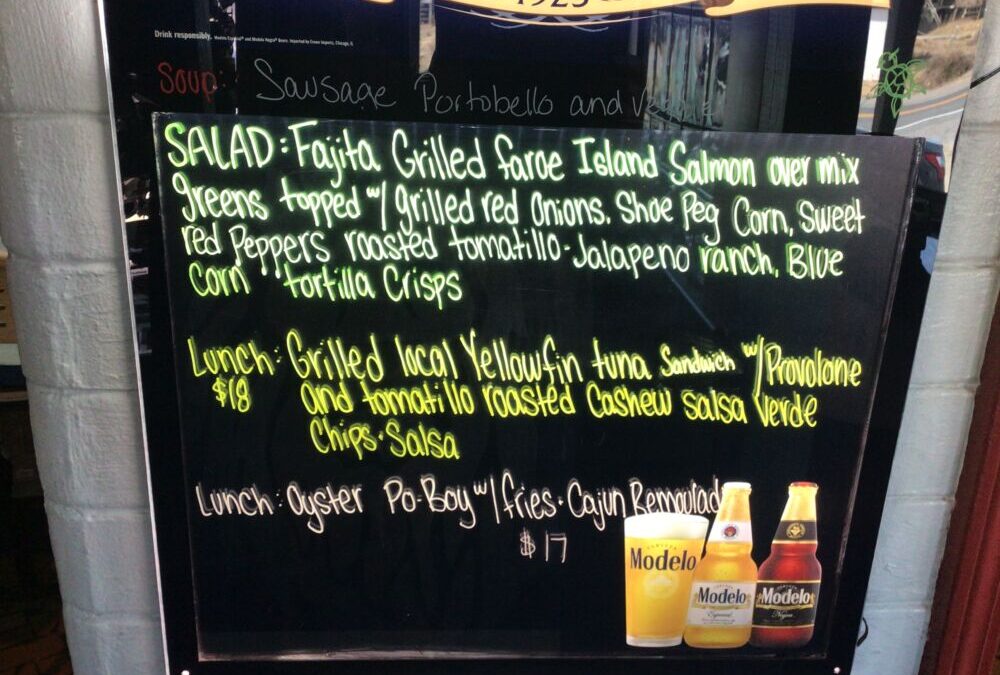 1925
Drink responsibly. Modelo Especial® and Modelo Negra® Beers. Imported by Crown Imports, Chicago, IL
Soup: Sausage Portobello and
SALAD: Fajita Grilled faroe Island Salmon over mix
greens topped w/ grilled red Onions. Shoe Peg Corn, Sweet
red Peppers roasted tomatillo-Jalapeno ranch, Blue
Corn tortilla Crisps
Lunch: Grilled local Yellowfin tuna Sandwich w/ Provolone
$18 and tomatillo roasted Cashew salsa Verde
Chips-Salsa
Lunch: Oyster Po-Boy w/ fries. Cajun Remoulad
$17
Modelo
Modelo
Especial
Modelo
Negra